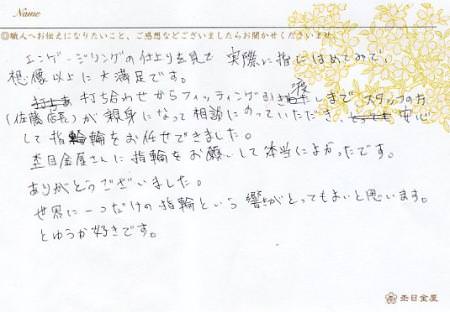 Name
◎職人へお伝えになりたいこと、ご感想などございましたらお聞かせくださいませ
エンゲージリングの仕上りを見て 実際に指にはめてみて、
想像以上に大満足です。
打ち合わせからフィッティング、お引き渡しまで、スタッフの方
(佐藤店長)が親身になって相談にのっていただき、安心
して指輪をお任せできました。
杢目金屋さんに指輪をお願いして本当によかったです。
ありがとうございました。
世界に一つだけの指輪という響きがとってもよいと思います。
とゆうか好きです。
杢目金屋